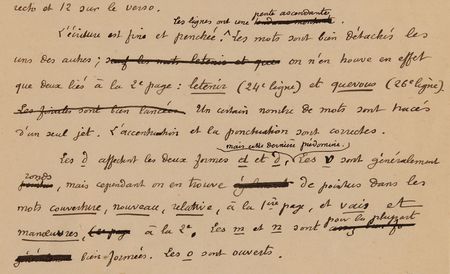 recto et 12 sur le verso.
Les lignes ont une pente ascendante.
L'écriture est fine et penchée. Les mots sont bien détachés les
uns des autres ; sauf les mots letenir et que on n'en trouve en effet
que deux liés à la 2e page : letenir (24e ligne) et quevous (26e ligne).
Les finales sont bien lancées. Un certain nombre de mots sont tracés
d'un seul jet. L'accentuation et la ponctuation sont correctes.
mais cette dernière prédomine.
Les d affectent les deux formes d et d, Les v sont généralement
ronds
pointus, mais cependant on en trouve de pointus dans les
mots couverture, nouveau, relative, à la 1ière page, et vais et
manœuvres, à la 2e. Les m et n sont pour la plupart
bien formées. Les o sont ouverts.